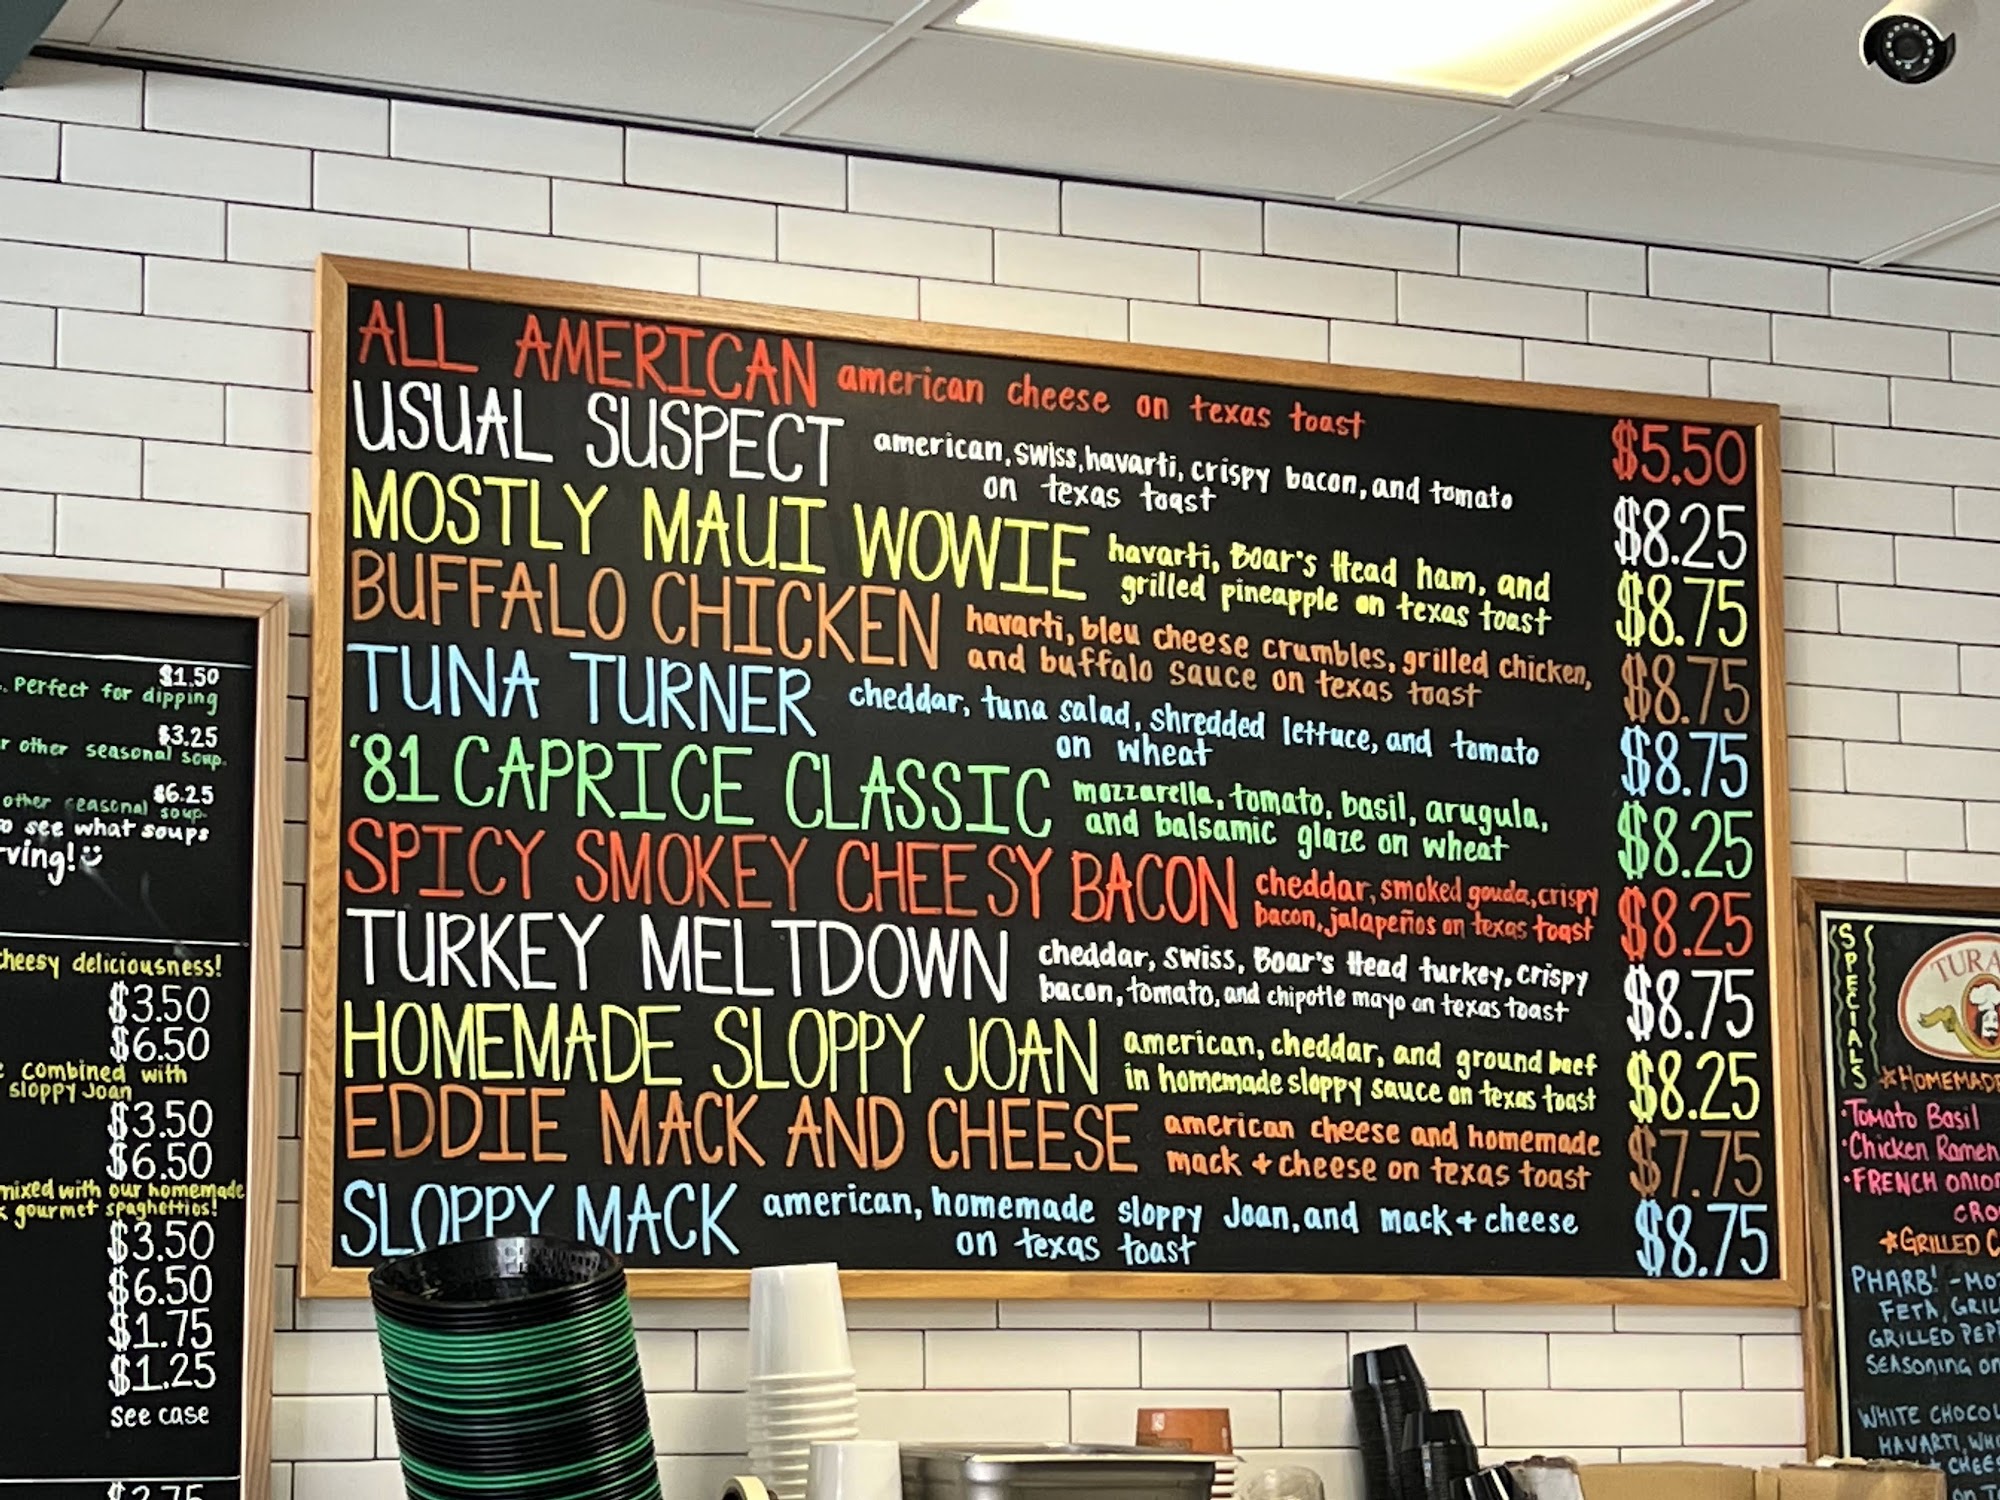 $1.50
. Perfect for dipping
$3.25
r other seasonal soup.
$6.25
other seasonal soup.
o see what soups
rving!
heesy deliciousness!
$3.50
$6.50
combined with
sloppy Joan
$3.50
$6.50
mixed with our homemade
gourmet spaghettios!
$3.50
$6.50
$1.75
$1.25
see case
$2.75
ALL AMERICAN american cheese on texas toast $5.50
USUAL SUSPECT american, swiss, havarti, crispy bacon, and tomato $8.25
on texas toast
MOSTLY MAUI WOWIE havarti, Boar's Head ham, and $8.75
grilled pineapple on texas toast
BUFFALO CHICKEN havarti, bleu cheese crumbles, grilled chicken, $8.75
and buffalo sauce on texas toast
TUNA TURNER cheddar, tuna salad, shredded lettuce, and tomato $8.75
on wheat
'81 CAPRICE CLASSIC mozzarella, tomato, basil, arugula, $8.25
and balsamic glaze on wheat
SPICY SMOKEY CHEESY BACON cheddar, smoked gouda, crispy $8.25
bacon, jalapeños on texas toast
TURKEY MELTDOWN cheddar, swiss, Boar's Head turkey, crispy $8.75
bacon, tomato, and chipotle mayo on texas toast
HOMEMADE SLOPPY JOAN american, cheddar, and ground beef $8.25
in homemade sloppy sauce on texas toast
EDDIE MACK AND CHEESE american cheese and homemade $7.75
mack + cheese on texas toast
SLOPPY MACK american, homemade sloppy Joan, and mack + cheese $8.75
on texas toast
SPECIALS
TURA
*HOMEMADE
·Tomato Basil
·Chicken Ramen
·FRENCH ONION
CRO
*GRILLED C
PHARB! -MOZ
FETA, GRIL
GRILLED PEPP
SEASONING ON
WHITE CHOCOL
HAVARTI, WH
+ CHEES
ON T